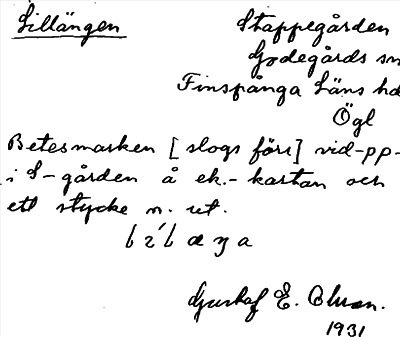 Lillängen
Stappegården
Godegårds sn
Finspånga Läns hd
Ögl
Betesmarken [slogs förr] vid -pp-
i S-gården å ek.-kartan och
ett stycke n. ut.
Gustaf E. Olson.
1931